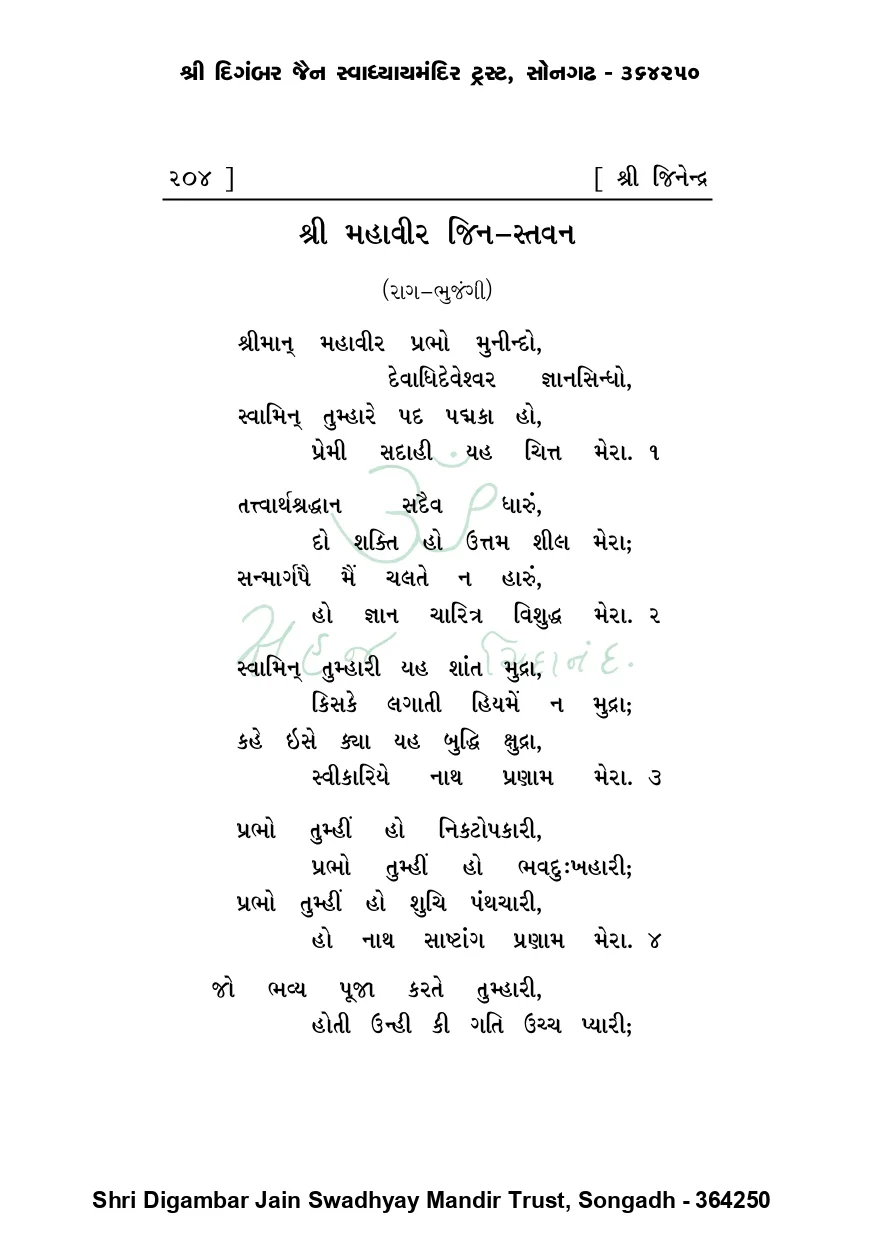 શ્રી દિગંબર જૈન સ્વાધ્યાયમંદિર ટ્રસ્ટ, સોનગઢ - ૩૬૪૨૫૦
૨૦૪ ] [ શ્રી જિનેન્દ્ર
શ્રી મહાવીર જિન–સ્તવન
(રાગ–ભુજંગી)
શ્રીમાન્ મહાવીર પ્રભો મુનીન્દો,
દેવાધિદેવેશ્વર જ્ઞાનસિન્ધો,
સ્વામિન્ તુમ્હારે પદ પદ્મકા હો,
પ્રેમી સદાહી યહ ચિત્ત મેરા. ૧
તત્ત્વાર્થશ્રદ્ધાન સદૈવ ધારું,
દો શક્તિ હો ઉત્તમ શીલ મેરા;
સન્માર્ગપૈ મૈં ચલતે ન હારું,
હો જ્ઞાન ચારિત્ર વિશુદ્ધ મેરા. ૨
સ્વામિન્ તુમ્હારી યહ શાંત મુદ્રા,
કિસકે લગાતી હિયમેં ન મુદ્રા;
કહે ઇસે ક્યા યહ બુદ્ધિ ક્ષુદ્રા,
સ્વીકારિયે નાથ પ્રણામ મેરા. ૩
પ્રભો તુમ્હીં હો નિકટોપકારી,
પ્રભો તુમ્હીં હો ભવદુઃખહારી;
પ્રભો તુમ્હીં હો શુચિ પંથચારી,
હો નાથ સાષ્ટાંગ પ્રણામ મેરા. ૪
જો ભવ્ય પૂજા કરતે તુમ્હારી,
હોતી ઉન્હી કી ગતિ ઉચ્ચ પ્યારી;
ૐ
સહજ ચિદાનંદ.
Shri Digambar Jain Swadhyay Mandir Trust, Songadh - 364250